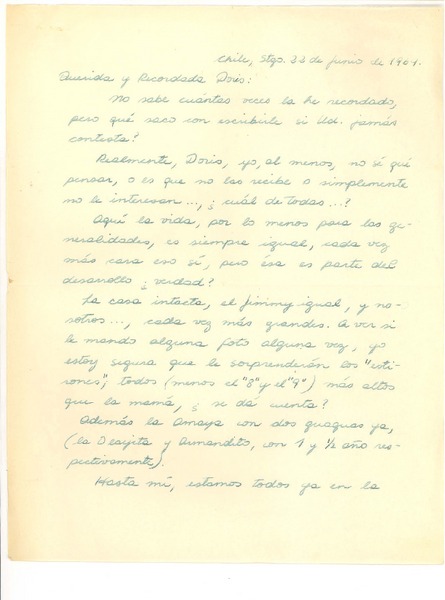 Chile, Stgo. 22 de junio de 1981.
Querida y Recordada Doris:
No sabe cuántas veces la he recordado,
pero qué saco con escribirle si Ud. jamás
contesta?
Realmente, Doris, yo, al menos, no sé qué
pensar, o es que no las recibe o simplemente
no le interesan..., ¿cuál de todas...?
Aquí la vida, por lo menos para las ge-
neralidades, es siempre igual, cada vez
más cara eso sí, pero ésa es parte del
desarrollo ¿verdad?
La casa intacta, el Jimmy igual, y no-
sotros..., cada vez más grandes. A ver si
le mando alguna foto alguna vez, yo
estoy segura que le sorprenderán los "esti-
rones"; todos (menos el "8" y el "9") más altos
que la mamá, ¿se dá cuenta?
Además la Amaya con dos guaguas ya,
(la Deayita y Armandito, con 1 y ½ año res-
pectivamente).
Hasta mí, estamos todos ya en la